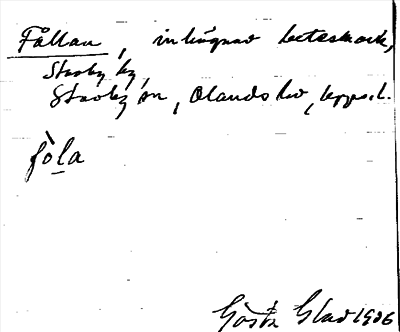 Fållan, inhägnad betesmark,
Stavby by,
Stavby sn, Olands hd, Upps.l.
fòla
Gösta Glad 1936